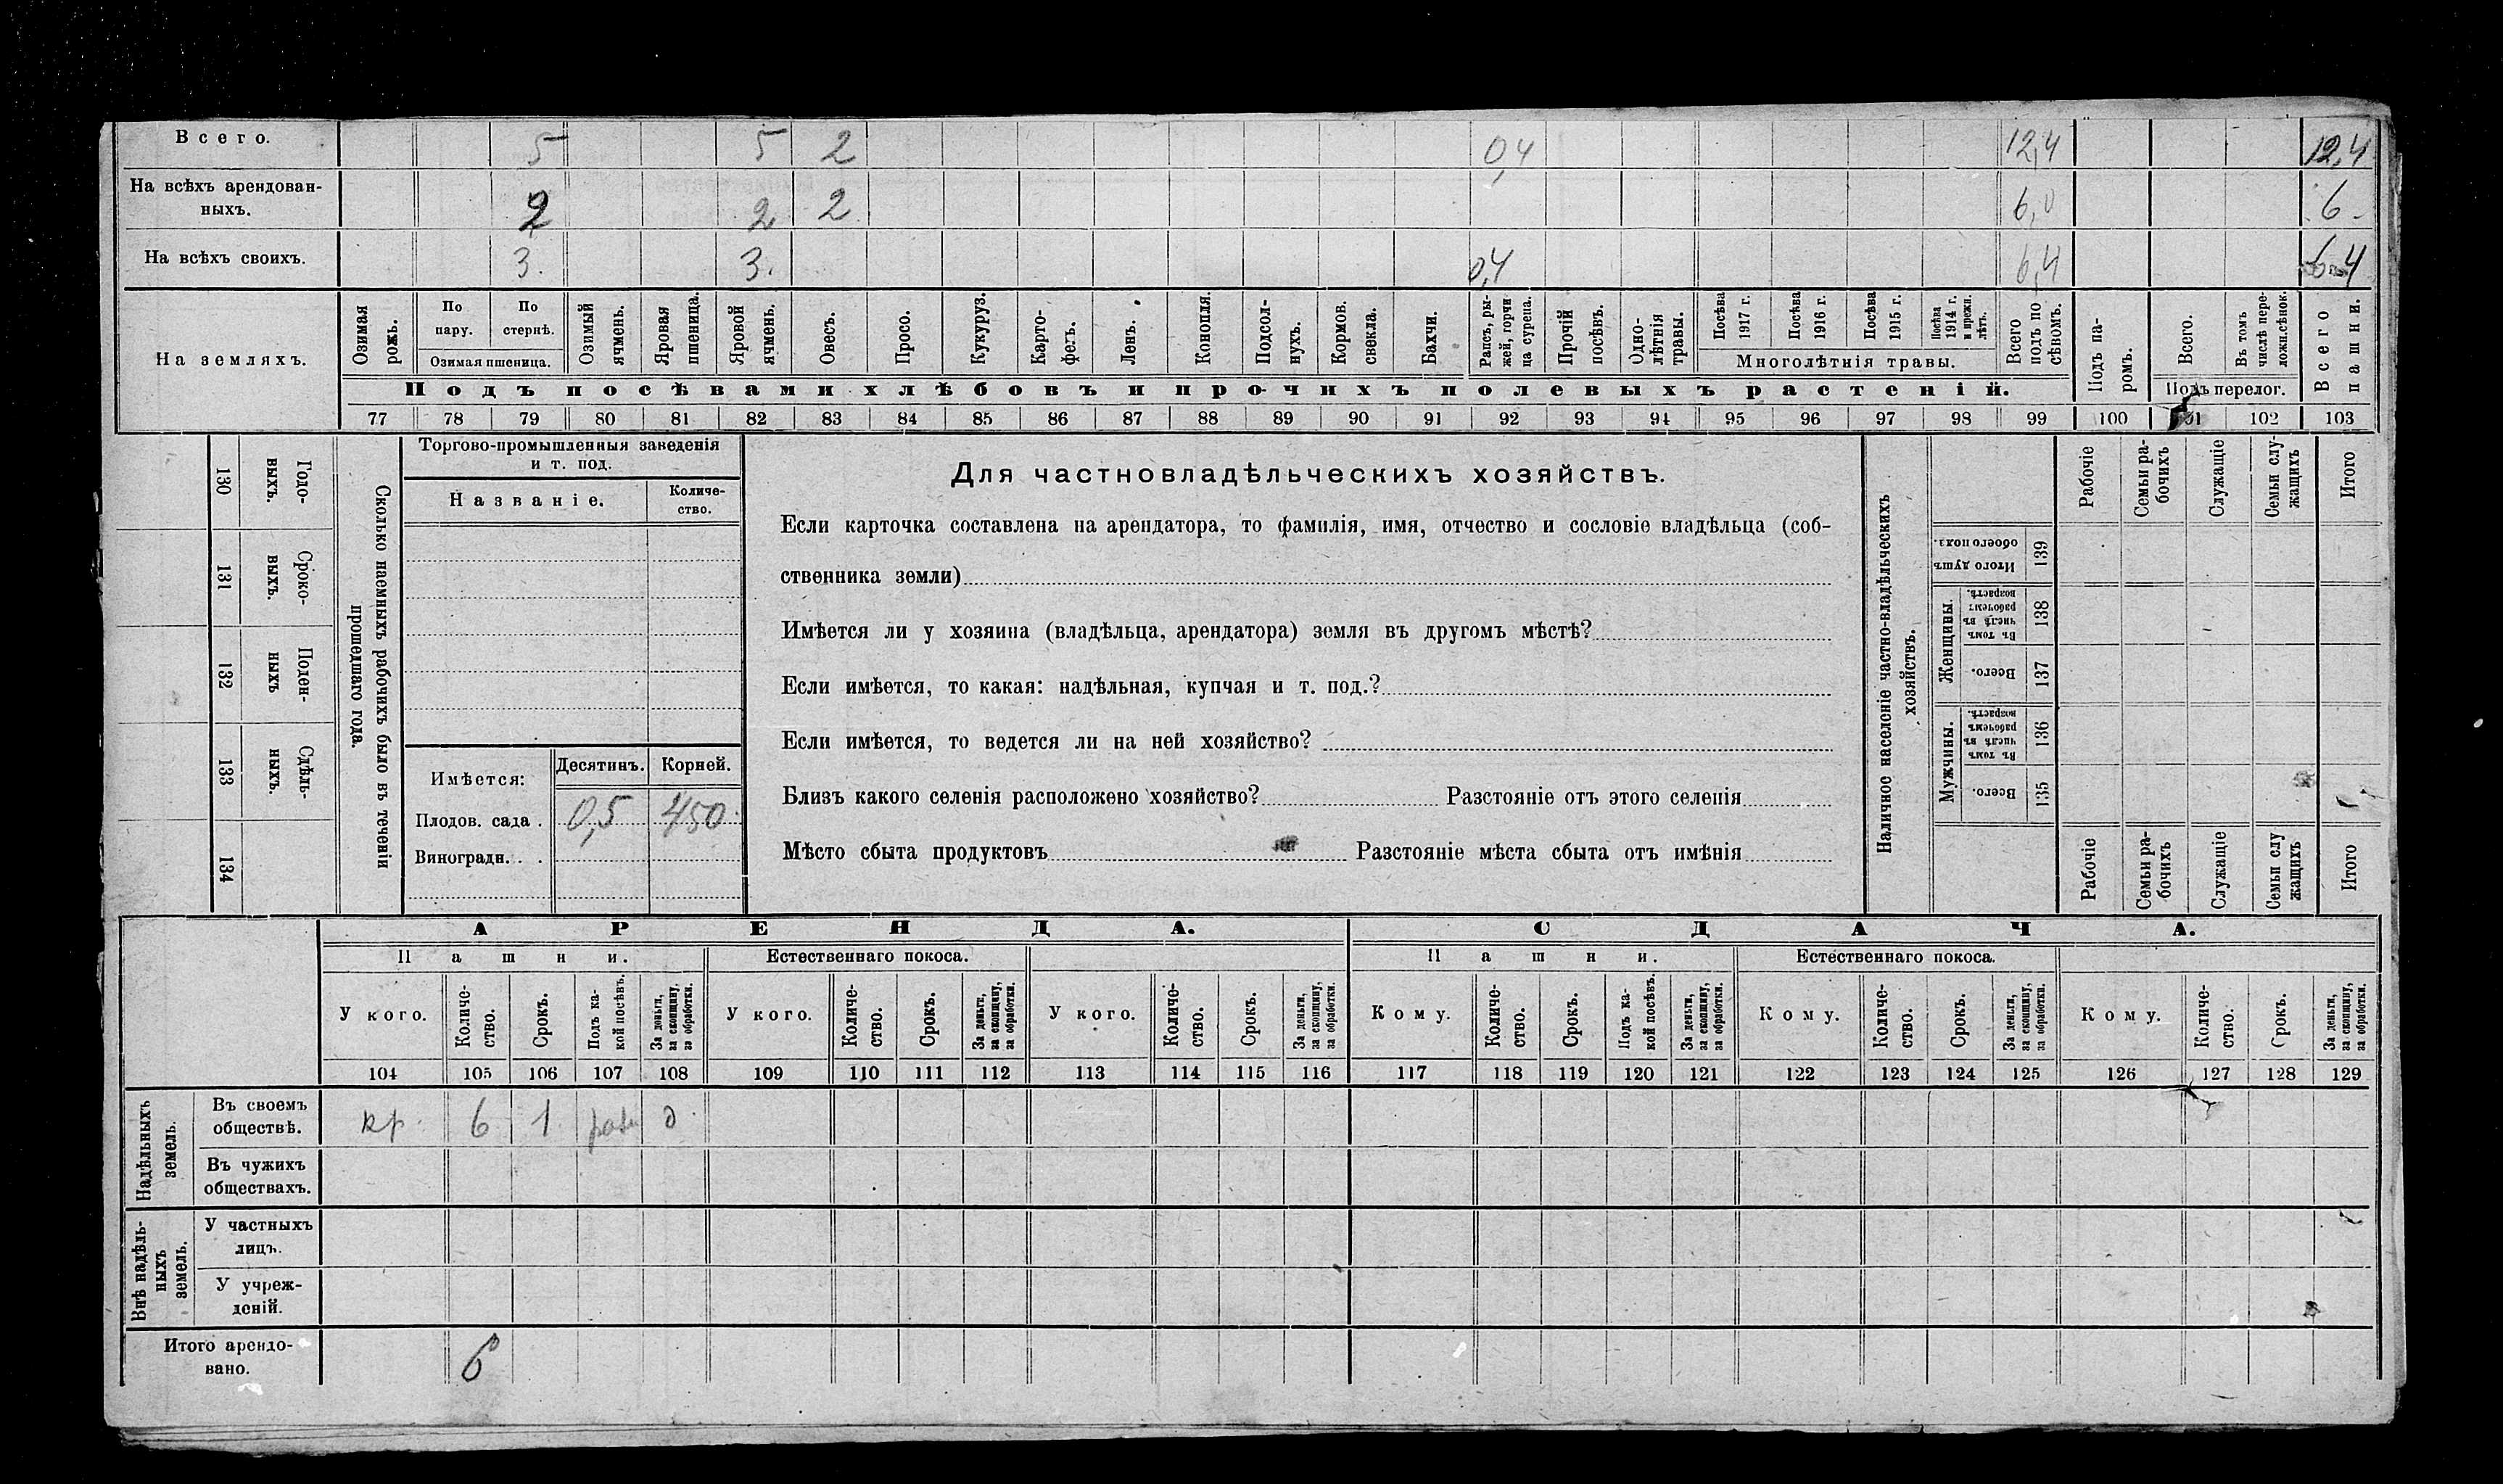 Всего. 5 5 2 0,4 12,4 12,4
На всѣхъ арендован-
ныхъ. 2 2 2 6,0 6
На всѣхъ своихъ. 3. 3. 0,4 6,4 6 4
На земляхъ.
Озимая рожь.
По пару.
По стернѣ.
Озимая пшеница.
Озимый ячмень.
Яровая пшеница.
Яровой ячмень.
Овесъ.
Просо.
Кукуруз.
Карто-
фель.
Ленъ.
Конопля.
Подсол-
нухъ.
Кормов. свекла.
Бахчи.
Рапсъ, ры-
жей, горчи
ца сурепа.
Прочій посѣвъ.
Одно-
лѣтнія травы.
Посѣва 1917 г.
Посѣва 1916 г.
Посѣва 1915 г.
Посѣва 1914 г. и прежн. лѣтъ.
Многолѣтнія травы.
Всего подъ по сѣвомъ.
Подъ па-
ромъ.
Всего.
Въ томъ числѣ пере-
ложн.сѣнок.
Подъ перелог.
Всего пашни.
Подъ посѣвами хлѣбовъ и прочихъ полевыхъ растеній.
77 78 79 80 81 82 83 84 85 86 87 88 89 90 91 92 93 94 95 96 97 98 99 100 101 102 103
130 Годо-
выхъ.
131 Сроко-
выхъ.
132 Поден-
ныхъ
133 Сдѣль-
ныхъ.
134
Сколько наемныхъ рабочихъ было въ теченіи
прошедшаго года.
Торгово-промышленныя заведенія
и т. под.
Названіе.
Количе-
ство.
Имѣется: Десятинъ. Корней.
Плодов. сада . 0,5 450
Виноградн. . .
Для частновладѣльческихъ хозяйствъ.
Если карточка составлена на арендатора, то фамилія, имя, отчество и сословіе владѣльца (соб-
ственника земли)
Имѣется ли у хозяина (владѣльца, арендатора) земля въ другомъ мѣстѣ?
Если имѣется, то какая: надѣльная, купчая и т. под.?
Если имѣется, то ведется ли на ней хозяйство?
Близъ какого селенія расположено хозяйство? Разстояніе отъ этого селенія
Мѣсто сбыта продуктовъ Разстояніе мѣста сбыта отъ имѣнія
Наличное населеніе частно-владѣльческихъ
хозяйствъ.
Рабочіе
Семьи ра-
бочихъ
Служащіе
Семьи слу-
жащихъ
Итого
Итого душъ обоего пола. 139
Женщины.
Въ томъ числѣ въ рабочемъ возрастѣ. 138
Всего. 137
Мужчины.
Въ томъ числѣ въ рабочемъ возрастѣ. 136
Всего. 135
Рабочіе
Семьи ра-
бочихъ
Служащіе
Семьи слу
жащихъ
Итого
АРЕНДА. СДАЧА.
Пашни. Естественнаго покоса. Пашни. Естественнаго покоса.
У кого.
Количе-
ство.
Срокъ.
Подъ ка-
кой посѣвъ.
За деньги, за скопщину, за обработки.
У кого.
Количе-
ство.
Срокъ.
За деньги, за скопщину, за обработки.
У кого.
Количе-
ство.
Срокъ.
За деньги, за скопщину, за обработки.
Кому.
Количе-
ство.
Срокъ.
Подъ ка-
кой посѣвъ.
За деньги, за скопщину, за обработки.
Кому.
Количе-
ство.
Срокъ.
За деньги, за скопщину, за обработки.
Кому.
Количе-
ство.
Срокъ.
За деньги, за скопщину, за обработки.
104 105 106 107 108 109 110 111 112 113 114 115 116 117 118 119 120 121 122 123 124 125 126 127 128 129
Надѣльныхъ
земель.
Въ своемъ
обществѣ. кр. 6 1 д
Въ чужихъ
обществахъ.
Внѣ надѣль-
ныхъ
земель.
У частныхъ
лицъ.
У учреж-
деній.
Итого арендо-
вано. 6